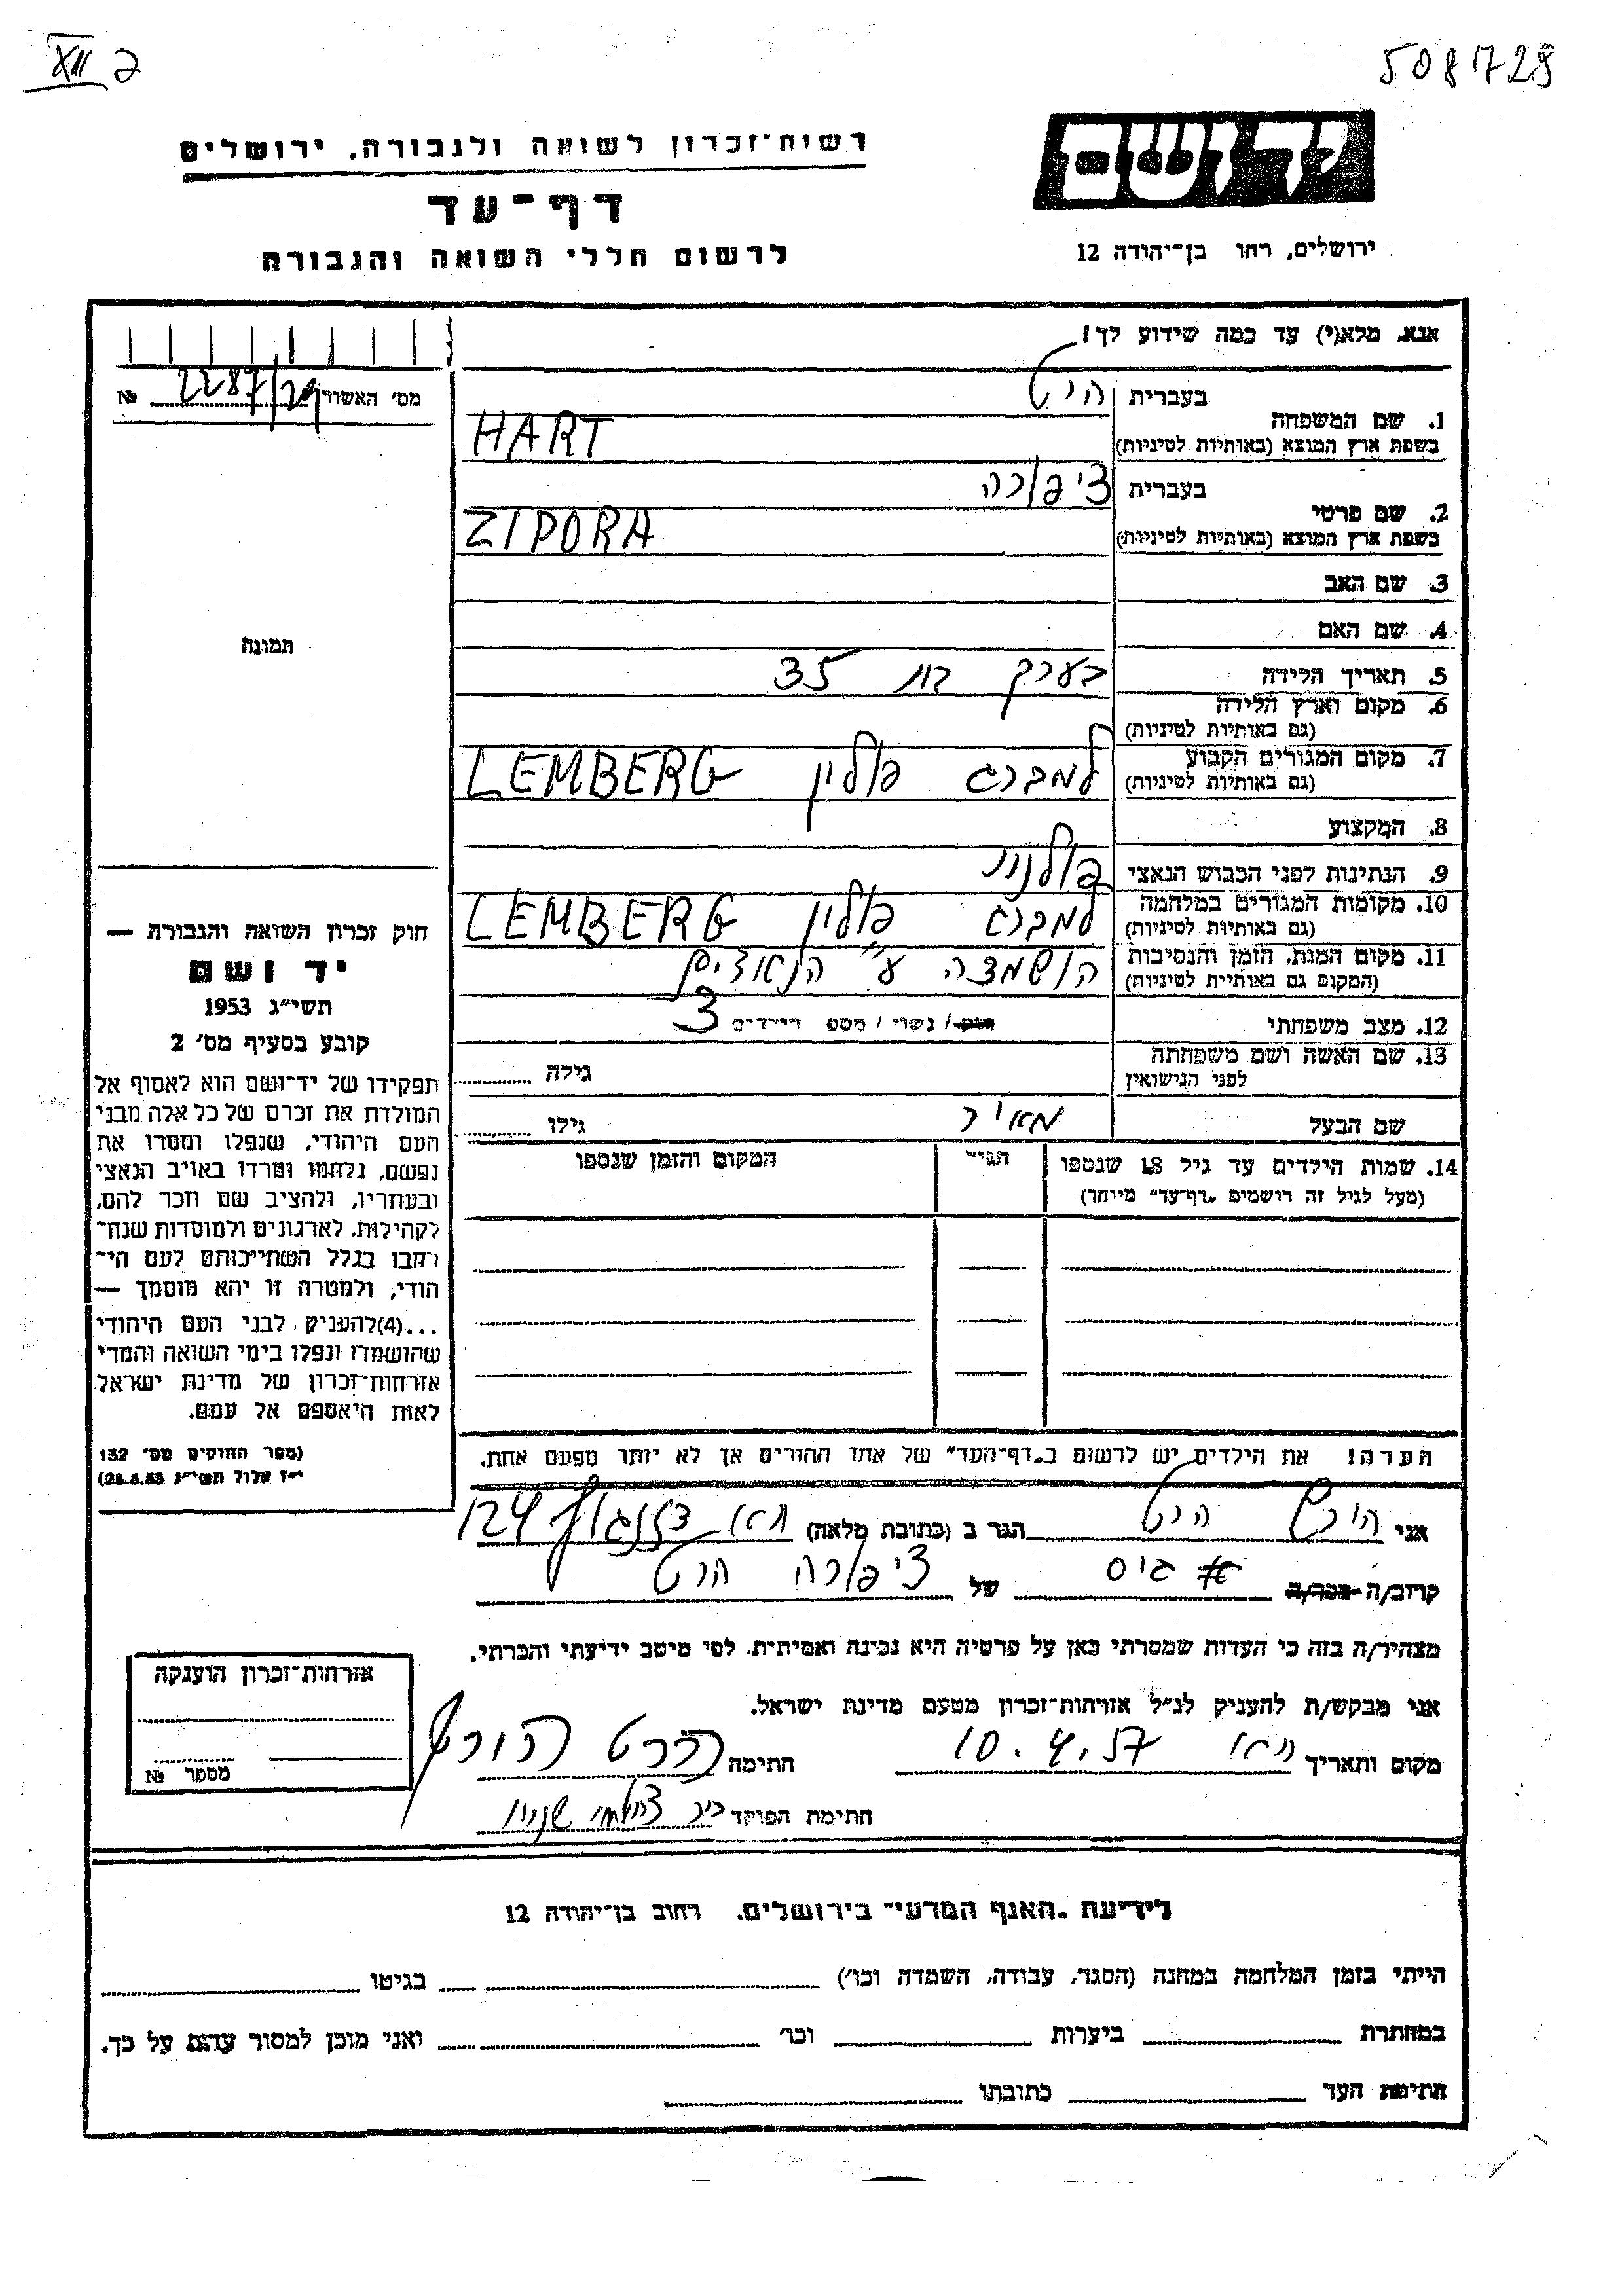 XIII 2
508729
יד ושם
ירושלים, רחו בן־יהודה 12
רשות־זכרון לשואה ולגבורה, ירושלים
דף־עד
לרשום חללי השואה והגבורה
אנא, מלא(י) עד כמה שידוע לך!
מס' האשור 2287/29 №
תמונה
1. שם המשפחה
בעברית הרט
בשפת ארץ המוצא (באותיות לטיניות) HART
2. שם פרטי
בעברית ציפורה
בשפת ארץ המוצא (באותיות לטיניות) ZIPORA
3. שם האב
4. שם האם
5. תאריך הלידה בערך בת 35
6. מקום וארץ הלידה
(גם באותיות לטיניות)
7. מקום המגורים הקבוע
(גם באותיות לטיניות) למברג פולין LEMBERG
8. המקצוע
9. הנתינות לפני הכבוש הנאצי פולנית
10. מקומות המגורים במלחמה
(גם באותיות לטיניות) למברג פולין LEMBERG
11. מקום המות, הזמן והנסיבות
(המקום גם באותיות לטיניות) הושמדה ע"י הנאצים
12. מצב משפחתי רוק / נשוי / מספר הילדים 3
13. שם האשה ושם משפחתה
לפני הנישואין גילה
שם הבעל מאיר גילו
14. שמות הילדים עד גיל 18 שנספו
(מעל לגיל זה רושמים „דף־עד" מיוחד)
הגיל
המקום והזמן שנספו
הערה! את הילדים יש לרשום ב„דף־העד" של אחד ההורים אך לא יותר מפעם אחת.
חוק זכרון השואה והגבורה —
יד ושם
תשי"ג 1953
קובע בסעיף מס' 2
תפקידו של יד־ושם הוא לאסוף אל
המולדת את זכרם של כל אלה מבני
העם היהודי, שנפלו ומסרו את
נפשם, נלחמו ומרדו באויב הנאצי
ובעוזריו, ולהציב שם וזכר להם,
לקהילות, לארגונים ולמוסדות שנח־
רבו בגלל השתייכותם לעם הי־
הודי, ולמטרה זו יהא מוסמך —
...(4)להעניק לבני העם היהודי
שהושמדו ונפלו בימי השואה והמרי
אזרחות־זכרון של מדינת ישראל
לאות היאספם אל עמם.
(ספר החוקים מס' 132
י"ז אלול תשי"ג 28.8.53)
אני הורט הרט הגר ב (כתובת מלאה) ת״א 124
קרוב/ה מכר/ה גיס של ציפורה הרט
מצהיר/ה בזה כי העדות שמסרתי כאן על פרטיה היא נכונה ואמיתית, לפי מיטב ידיעתי והכרתי.
אני מבקש/ת להעניק לנ"ל אזרחות־זכרון מטעם מדינת ישראל.
מקום ותאריך ת״א 10.4.57 חתימה
חתימת הפוקד
אזרחות־זכרון הוענקה
מספר №
לידיעת „האגף המדעי" בירושלים, רחוב בן־יהודה 12
הייתי בזמן המלחמה במחנה (הסגר, עבודה, השמדה וכו') בגיטו
במחתרת ביערות וכו' ואני מוכן למסור עדות על כך.
חתימת העד כתובתו